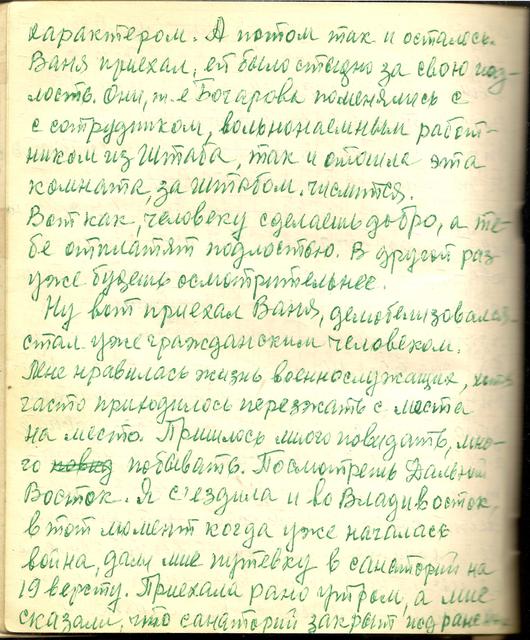 характером. А потом так и осталось.
Ваня приехал, ей было стыдно за свою под-
лость. Они, т.е Бочаровы поменялись с
с сотрудником, вольнонаемным работ-
ником из Штаба, так и отошла эта
комната, за штабом. числится.
Вот как, человеку сделаешь добро, а те-
бе отплатят подлостью. В другой раз
уже будешь осмотрительнее.
Ну вот приехал Ваня, демобелизовался
стал уже гражданским человеком.
Мне нравилась жизнь военнослужащих, хоть
часто приходилось переезжать с места
на место. Пришлось много повидать, мно-
го повид побывать. Посмотреть Дальний
Восток. Я с'ездила и во Владивосток,
в тот момент когда уже началась
война, дали мне путевку в санаторий на
19 версту. Приехала рано утром, а мне
сказали, что санаторий закрыт под